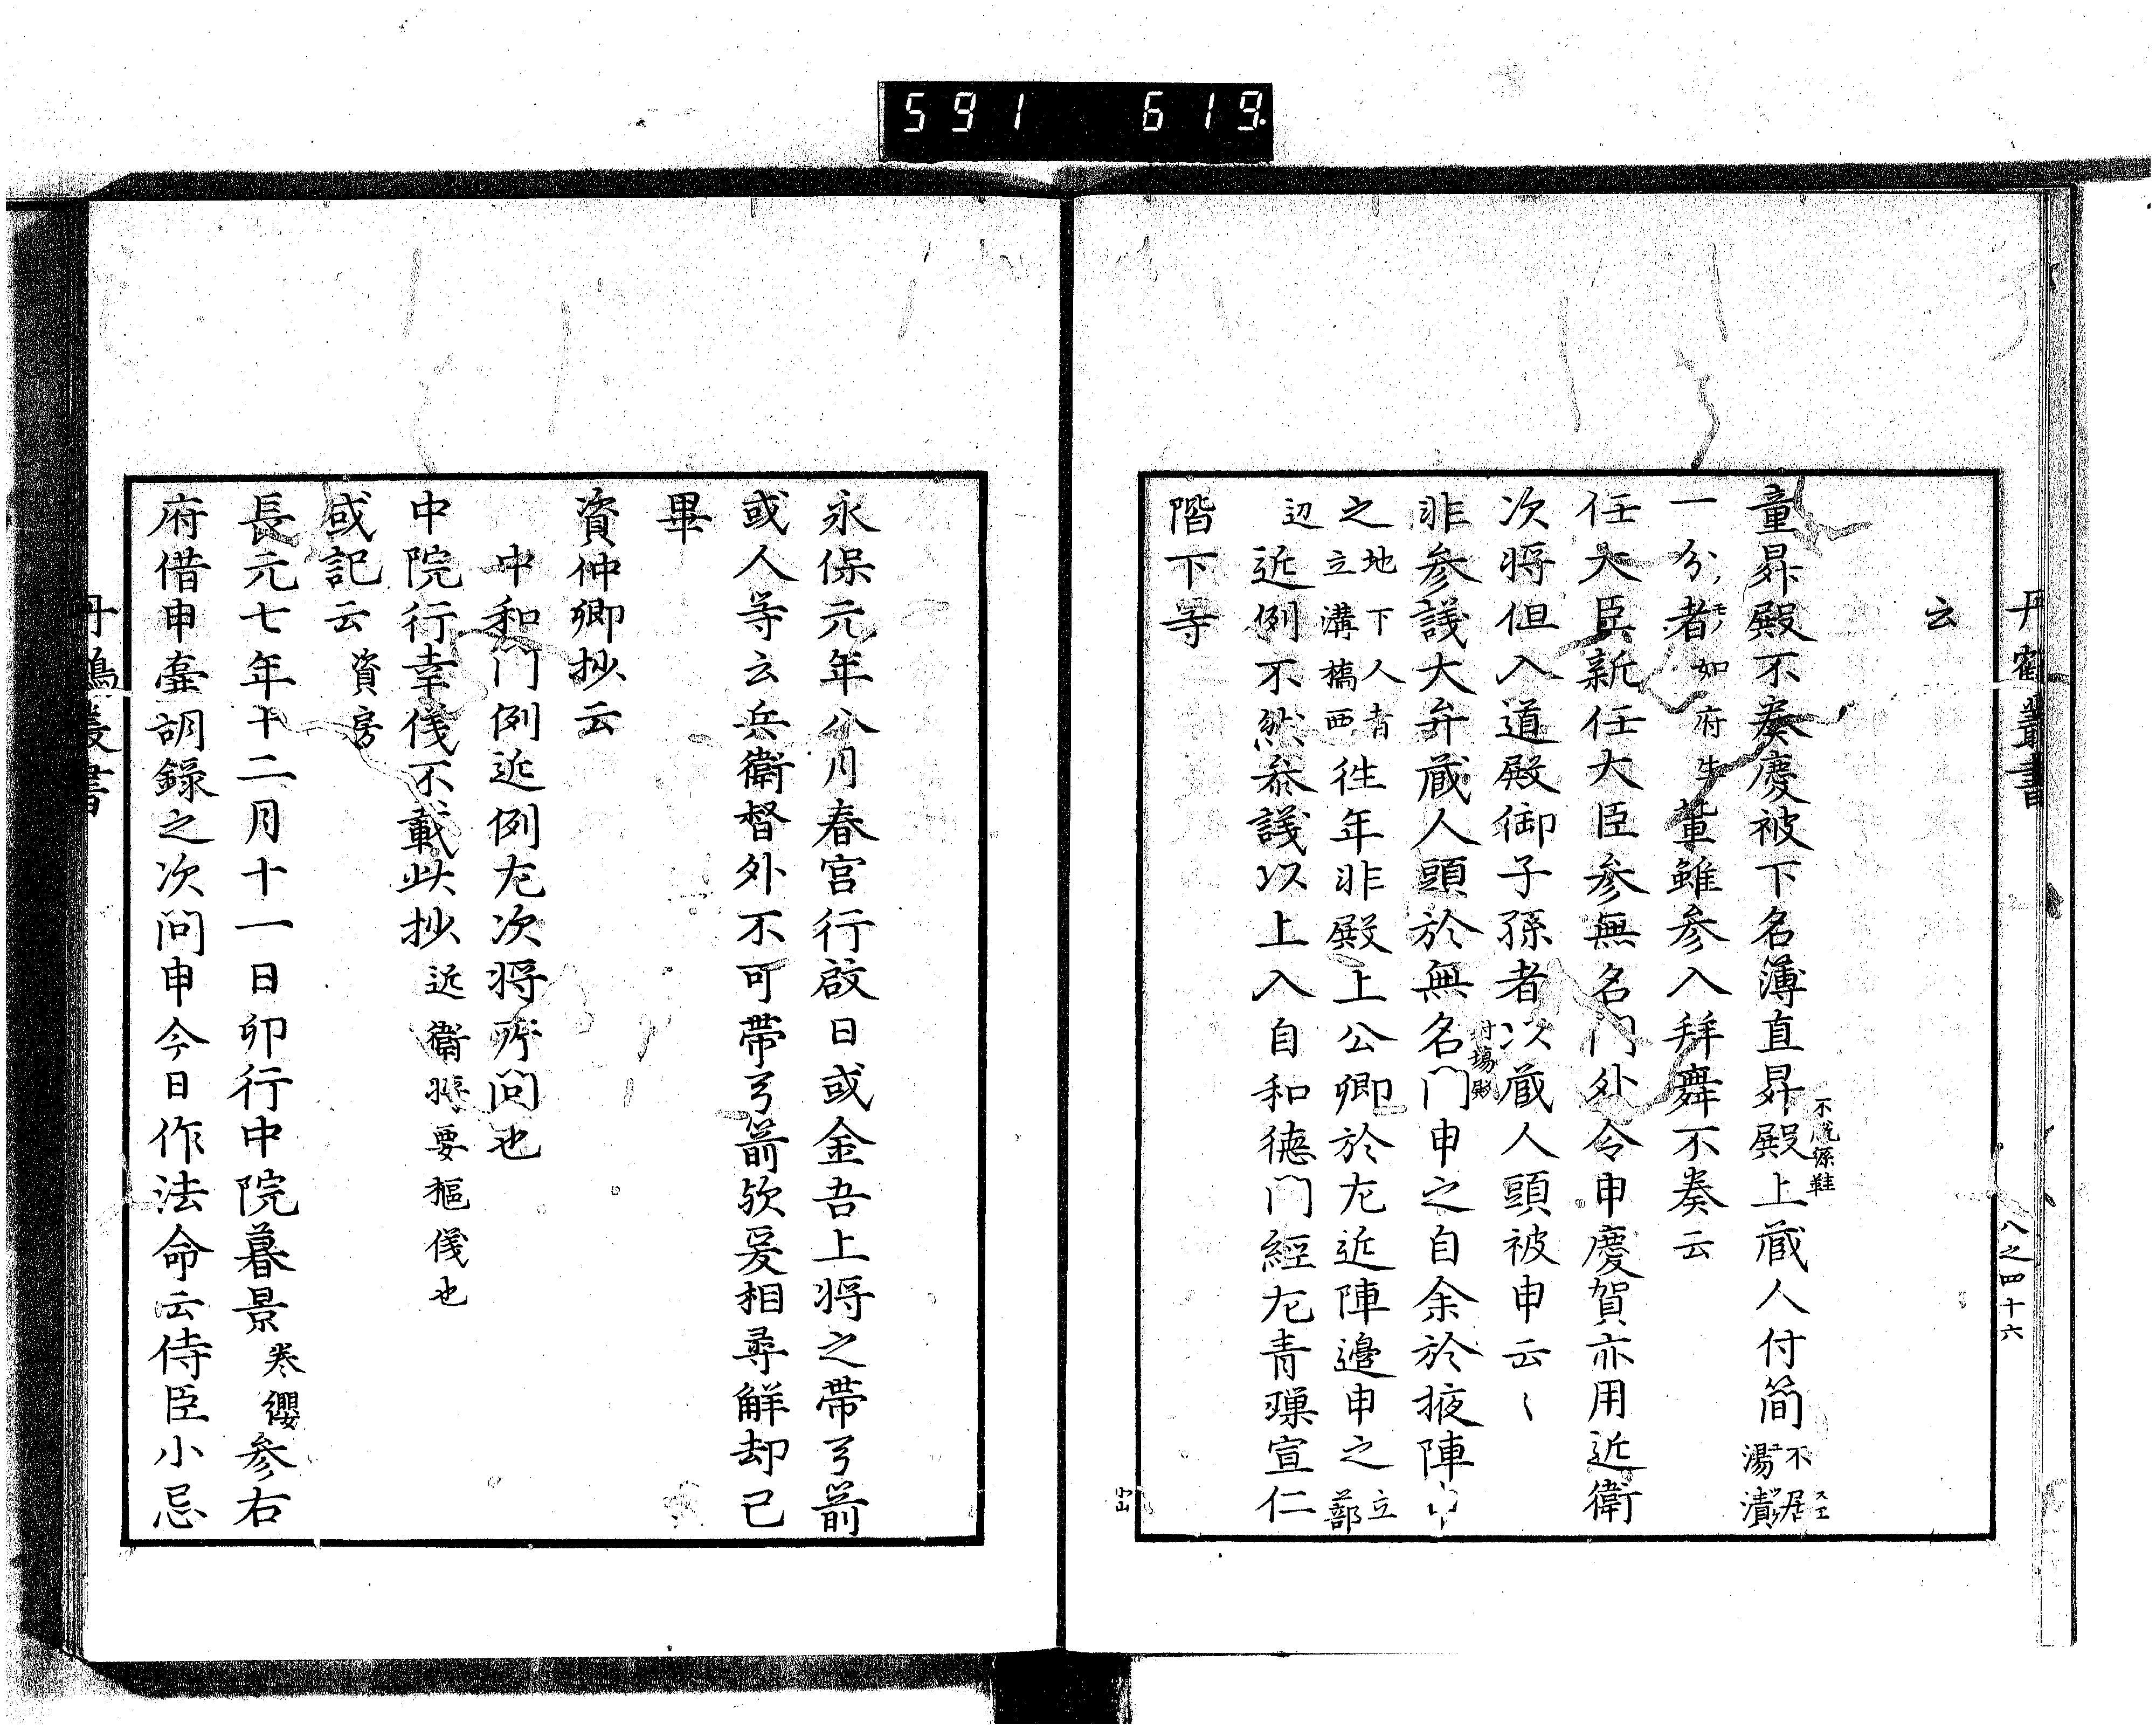 591 619
丹鶴叢書
八之四十六
云
童昇殿不奏慶被下名簿直昇殿上蔵人付簡 不居湯漬
一分者 如府生 輩雖参入拜舞不奏云
任大臣新任大臣参無名門外令申慶賀亦用近衛
次将但入道殿御子孫者以蔵人頭被申云〻
非参議大弁蔵人頭於無名門申之自余於掖陣
之 地下人者立溝橋西 往年非殿上公卿於左近陣邉申之 立蔀
辺 近例不然参議以上入自和徳門経左青璅宣仁
階下等
永保元年八月春宮行啓日或金吾上将之帯弓箭
或人等云兵衛督外不可帯弓箭欤爰相尋解却已
畢
資仲卿抄云
中和門例近例左次将所問也
中院行幸儀不載此抄 近衛将要樞儀也
或記云 資房
長元七年十二月十一日卯行中院暮景 巻纓 参右
府借申臺胡録之次問申今日作法命云侍臣小忌